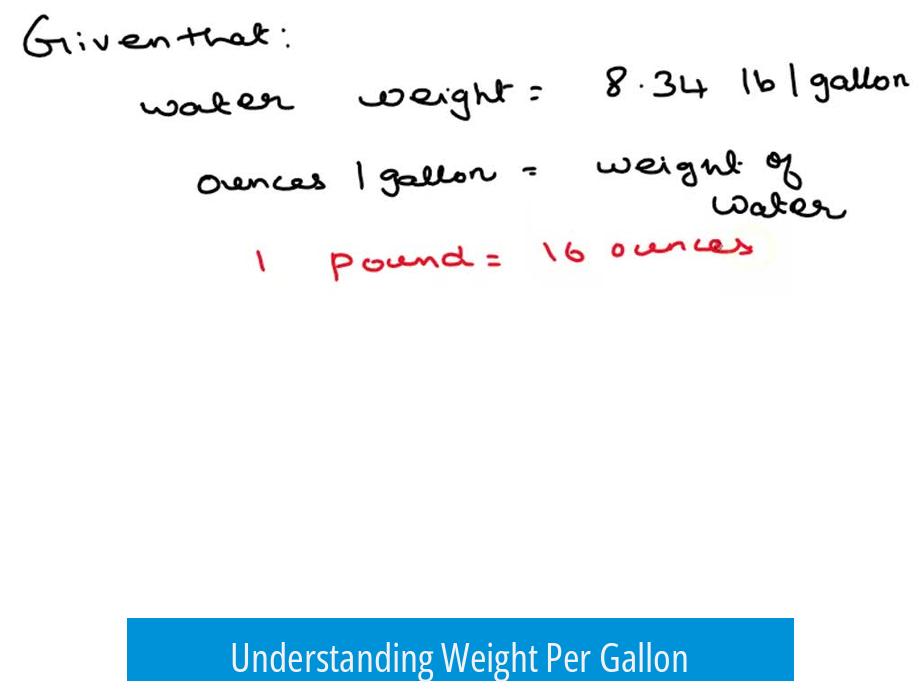 Given that:
water weight = 8.34 lb/gallon
ounces/gallon = weight of
water
1 pound = 16 ounces
Understanding Weight Per Gallon